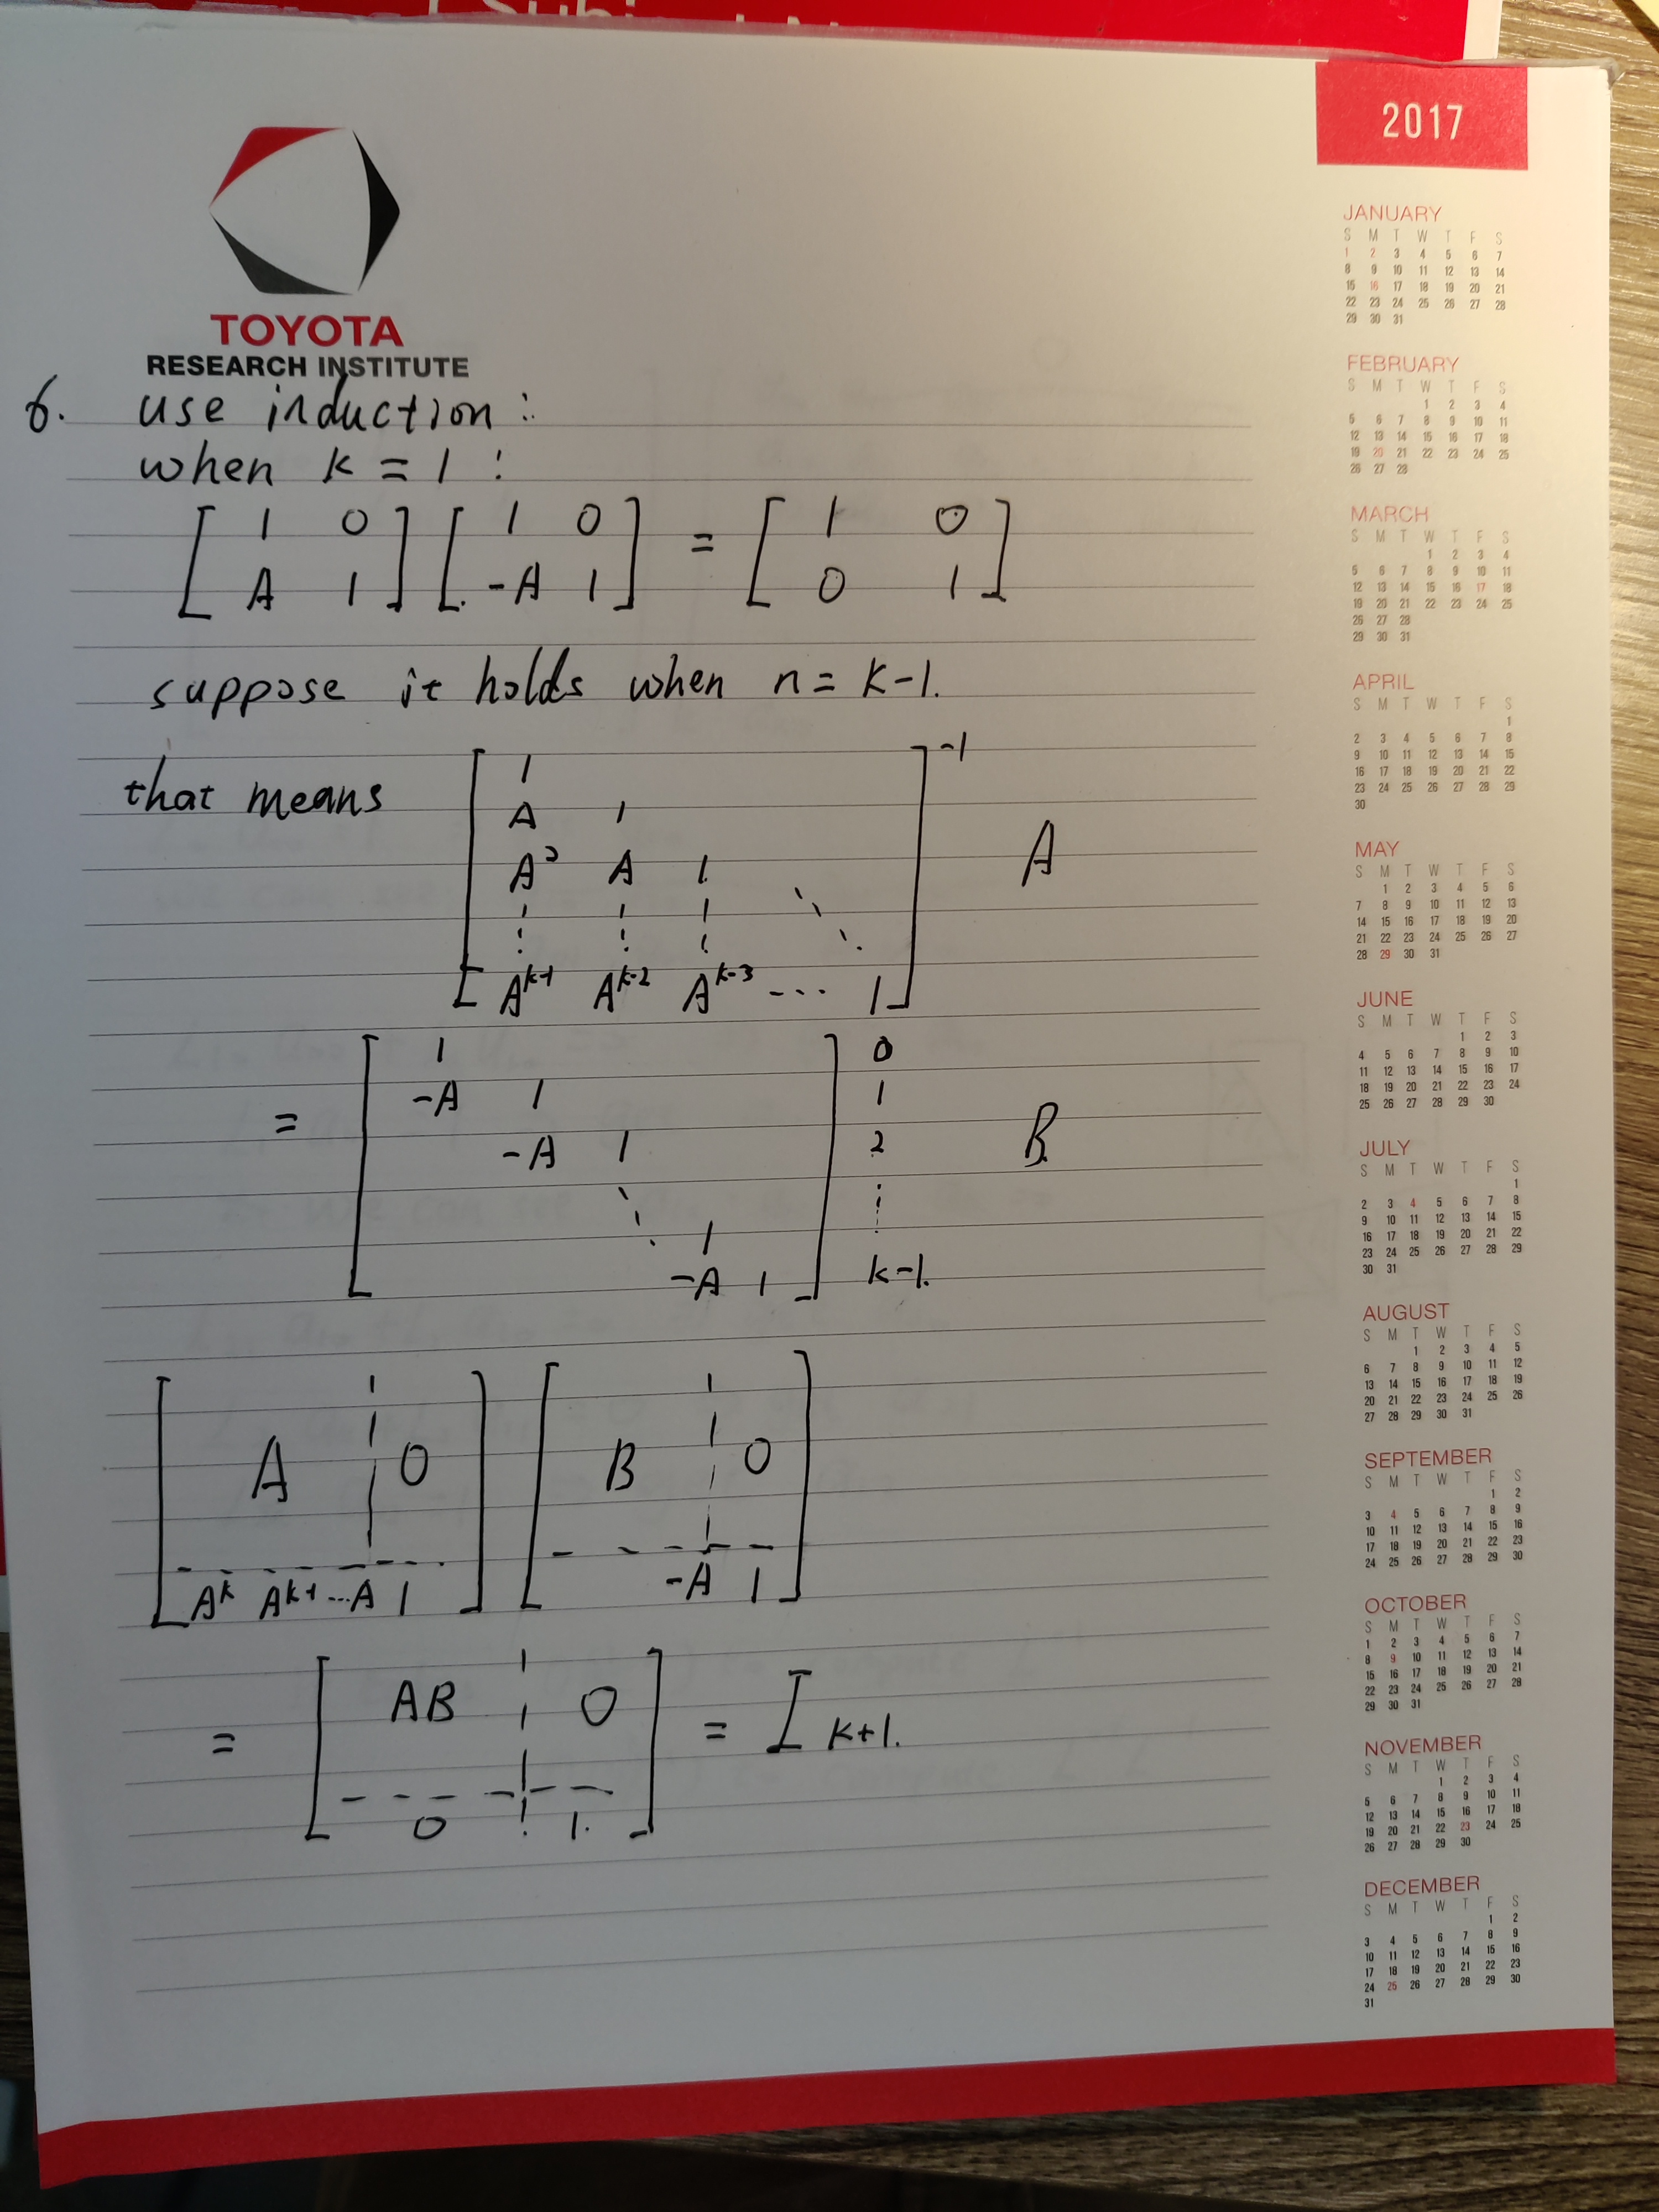 2017
TOYOTA
RESEARCH INSTITUTE
6. use induction :
when k = 1 :
[ 1 0 ] [ 1 0 ] = [ 1 0 ]
[ A 1 ] [ -A 1 ] [ 0 1 ]
suppose it holds when n = k-1.
that means
[ 1 ] -1
A 1
A² A 1 A
⋮ ⋮ ⋮ ⋱
A^{k-1} A^{k-2} A^{k-3} ... 1
= [ 1 ] 0
-A 1 1
-A 1 2 B
⋱ ⋮
1
-A 1 k-1.
[ A 0 ] [ B 0 ]
[ A^k A^{k-1} ... A 1 ] [ -A 1 ]
= [ AB 0 ] = I k+1.
[ 0 1. ]
JANUARY
S M T W T F S
1 2 3 4 5 6 7
8 9 10 11 12 13 14
15 16 17 18 19 20 21
22 23 24 25 26 27 28
29 30 31
FEBRUARY
S M T W T F S
1 2 3 4
5 6 7 8 9 10 11
12 13 14 15 16 17 18
19 20 21 22 23 24 25
26 27 28
MARCH
S M T W T F S
1 2 3 4
5 6 7 8 9 10 11
12 13 14 15 16 17 18
19 20 21 22 23 24 25
26 27 28
29 30 31
APRIL
S M T W T F S
1
2 3 4 5 6 7 8
9 10 11 12 13 14 15
16 17 18 19 20 21 22
23 24 25 26 27 28 29
30
MAY
S M T W T F S
1 2 3 4 5 6
7 8 9 10 11 12 13
14 15 16 17 18 19 20
21 22 23 24 25 26 27
28 29 30 31
JUNE
S M T W T F S
1 2 3
4 5 6 7 8 9 10
11 12 13 14 15 16 17
18 19 20 21 22 23 24
25 26 27 28 29 30
JULY
S M T W T F S
1
2 3 4 5 6 7 8
9 10 11 12 13 14 15
16 17 18 19 20 21 22
23 24 25 26 27 28 29
30 31
AUGUST
S M T W T F S
1 2 3 4 5
6 7 8 9 10 11 12
13 14 15 16 17 18 19
20 21 22 23 24 25 26
27 28 29 30 31
SEPTEMBER
S M T W T F S
1 2
3 4 5 6 7 8 9
10 11 12 13 14 15 16
17 18 19 20 21 22 23
24 25 26 27 28 29 30
OCTOBER
S M T W T F S
1 2 3 4 5 6 7
8 9 10 11 12 13 14
15 16 17 18 19 20 21
22 23 24 25 26 27 28
29 30 31
NOVEMBER
S M T W T F S
1 2 3 4
5 6 7 8 9 10 11
12 13 14 15 16 17 18
19 20 21 22 23 24 25
26 27 28 29 30
DECEMBER
S M T W T F S
1 2
3 4 5 6 7 8 9
10 11 12 13 14 15 16
17 18 19 20 21 22 23
24 25 26 27 28 29 30
31